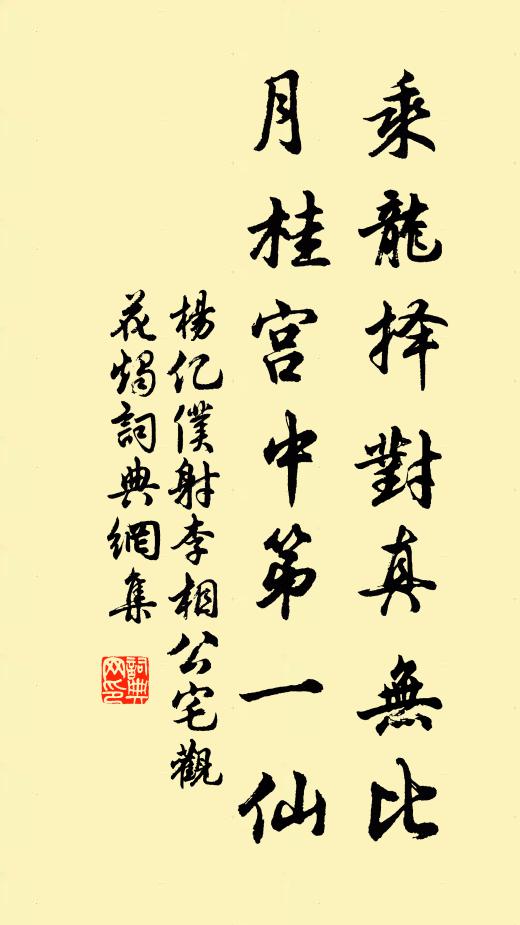 乘龍择對真無比
月桂宮中第一仙
楊亿僕射李相公宅觀
花燭詞典網集
詞典網印